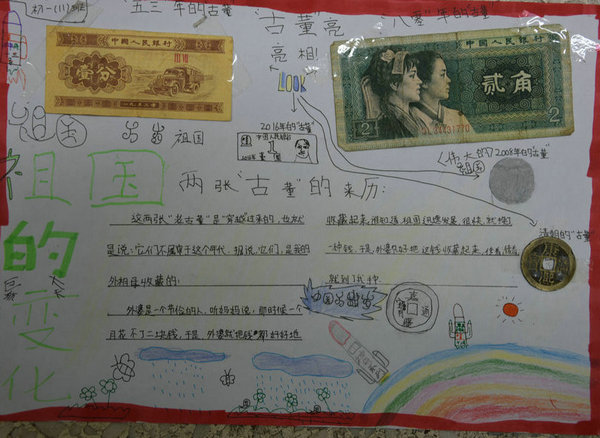 初一(11)班
"五三"年的"古董"
"古董亮
亮相!"
八零"年的"古董"
中国人民银行
壹分
一九五三年
中国人民银行
贰角
2
2
LOOK
祖国
祖国
2016年的"古董"
《伟大的》2008年的"古董"
祖国
两张"古董"的来历:
这两张"老古董"是穿越过来的,也就
是说:它们不属于这个年代。据说,它们,是我的
外祖母收藏的:
外婆是一个节俭的人,听妈妈说,那时候一个
月花不了二块钱,于是,外婆就把钱都好好地
收藏起来,谁知道,祖国迅速发展,很快,就换了
一种钱,于是,外婆只好地这钱收藏起来,
就到了我手
清朝的"古董"
祖国
的
变
化
中国